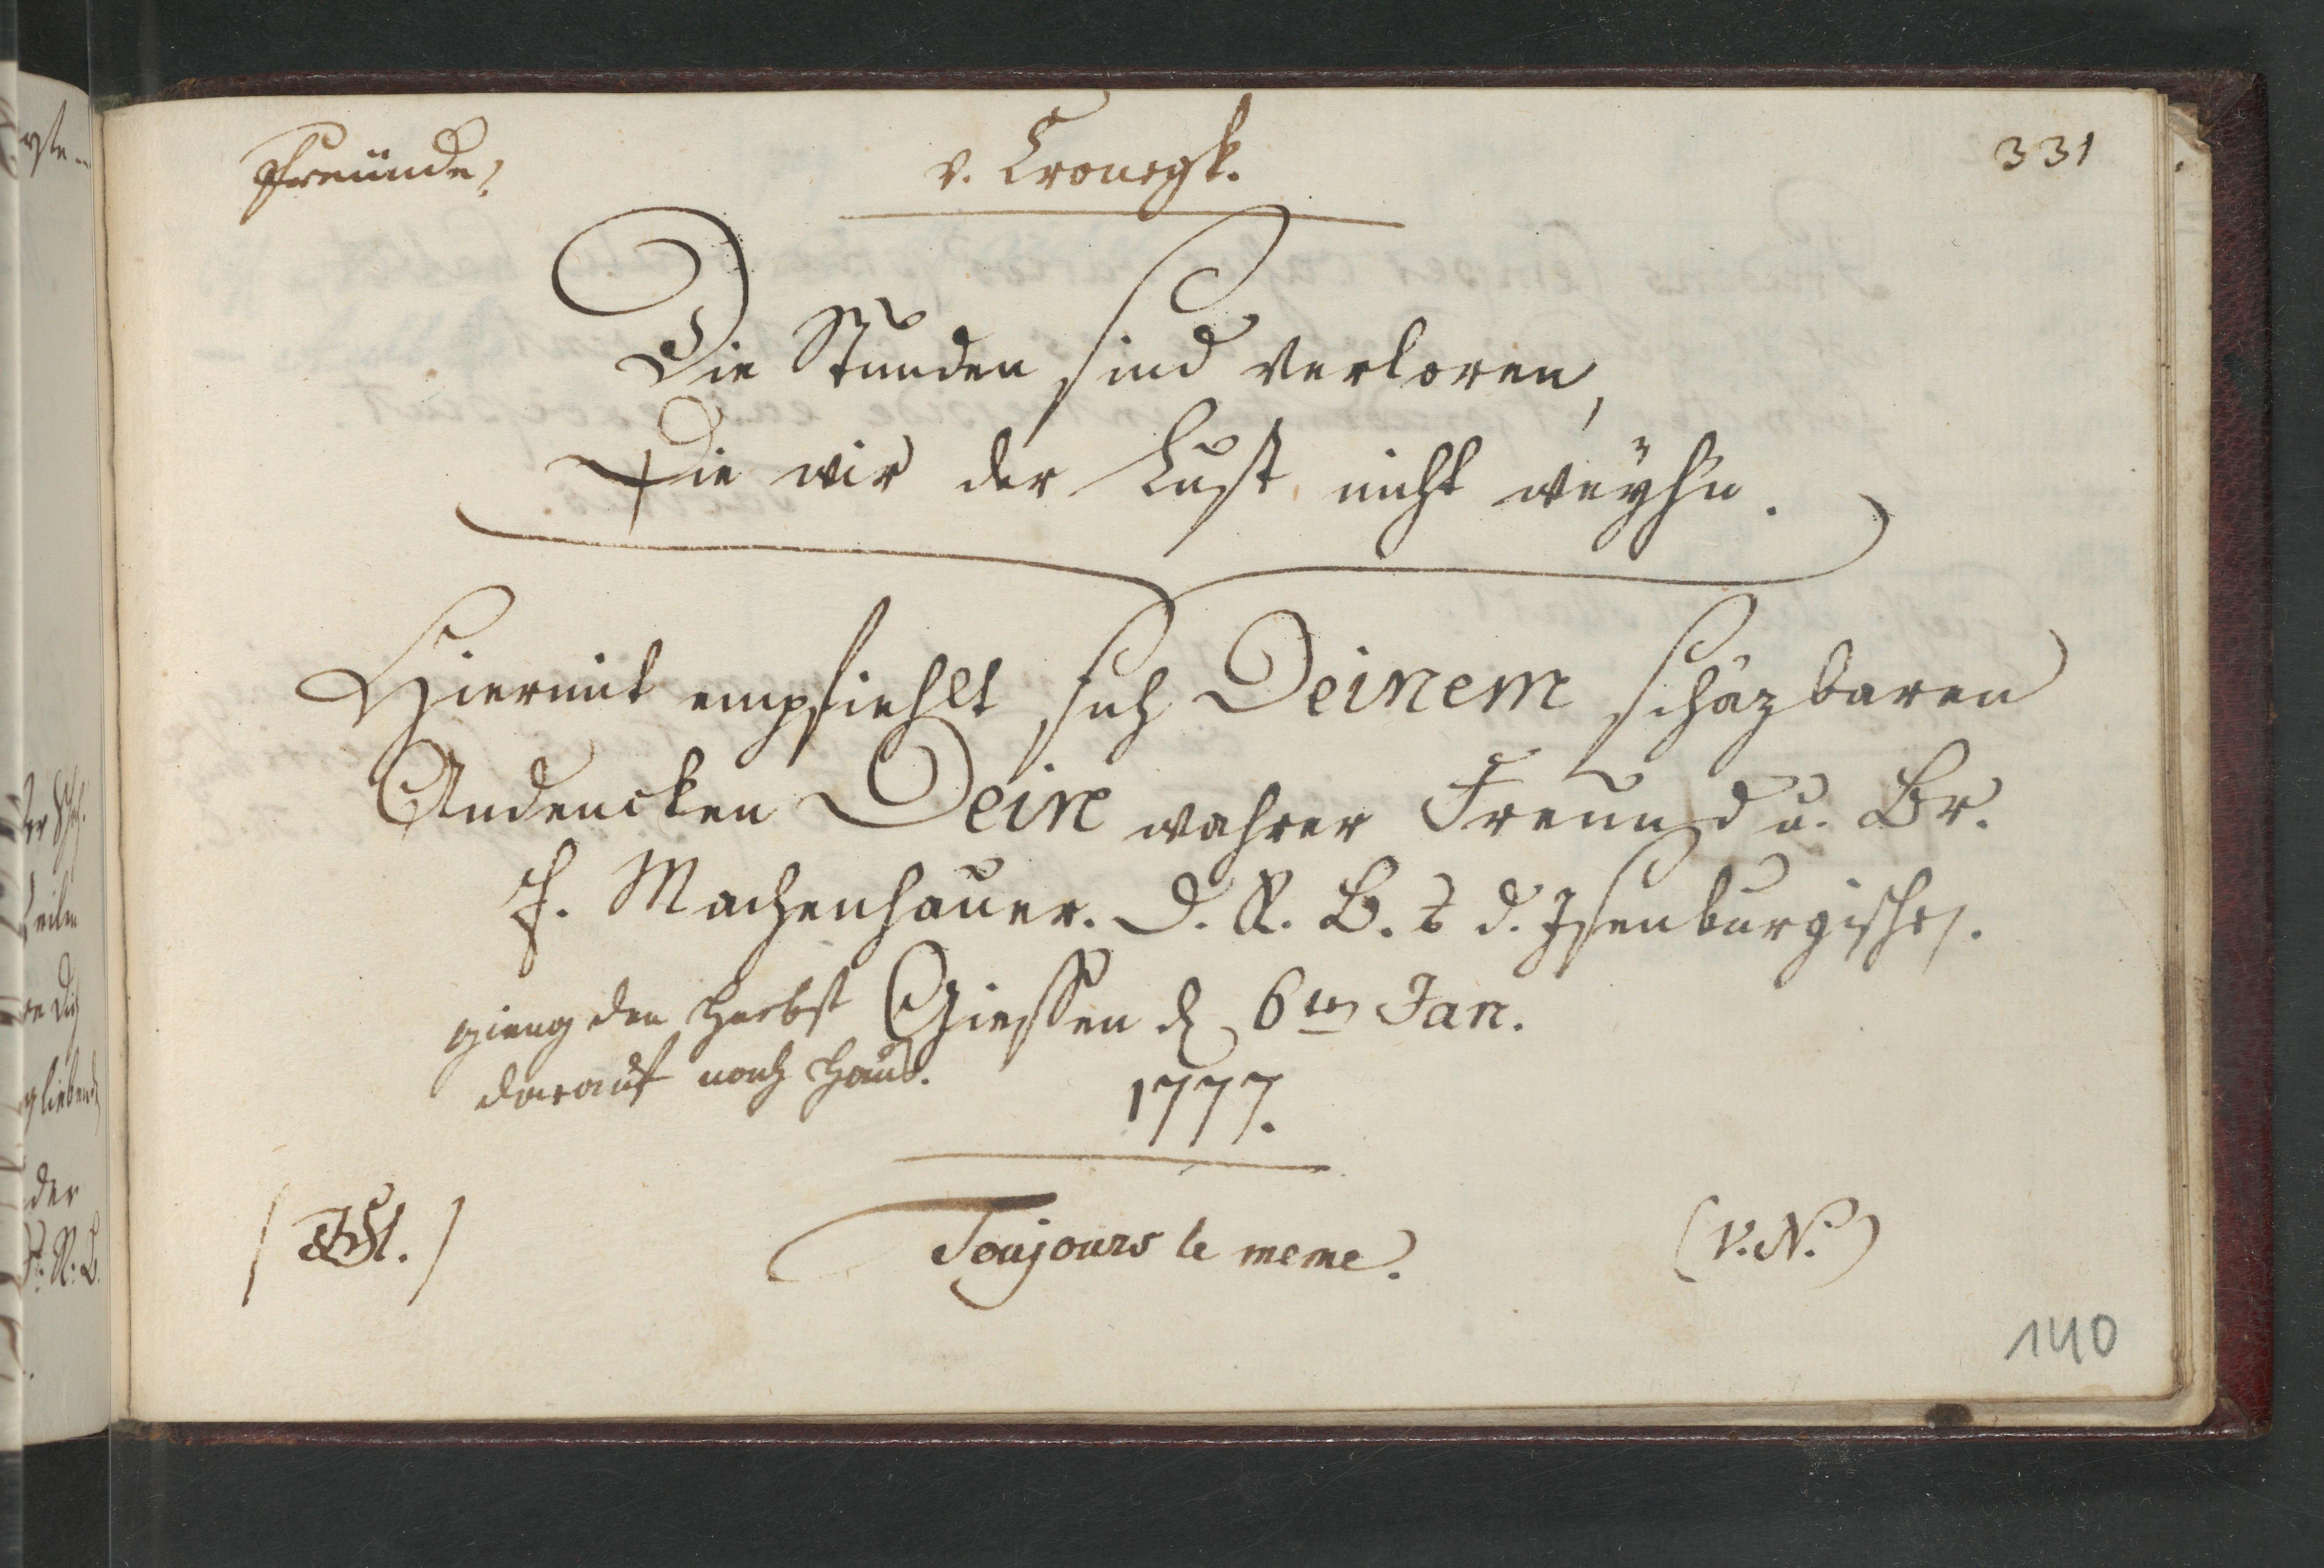 Freünde,
v. Cronegk.
331
Die Stunden sind verloren,
Die wir der Lust nicht weyhn.
Hiermit empfiehlt sich Deinem schäzbaren
Andencken Dein wahrer Freund u. Br.
F. Machenhauer. D. R. B. a. d. Isenburgischen.
gieng den Herbst
darauf nach Haus.
Giessen d. 6ten Jan.
1777.
Toujours le meme.
(V. N.)
140